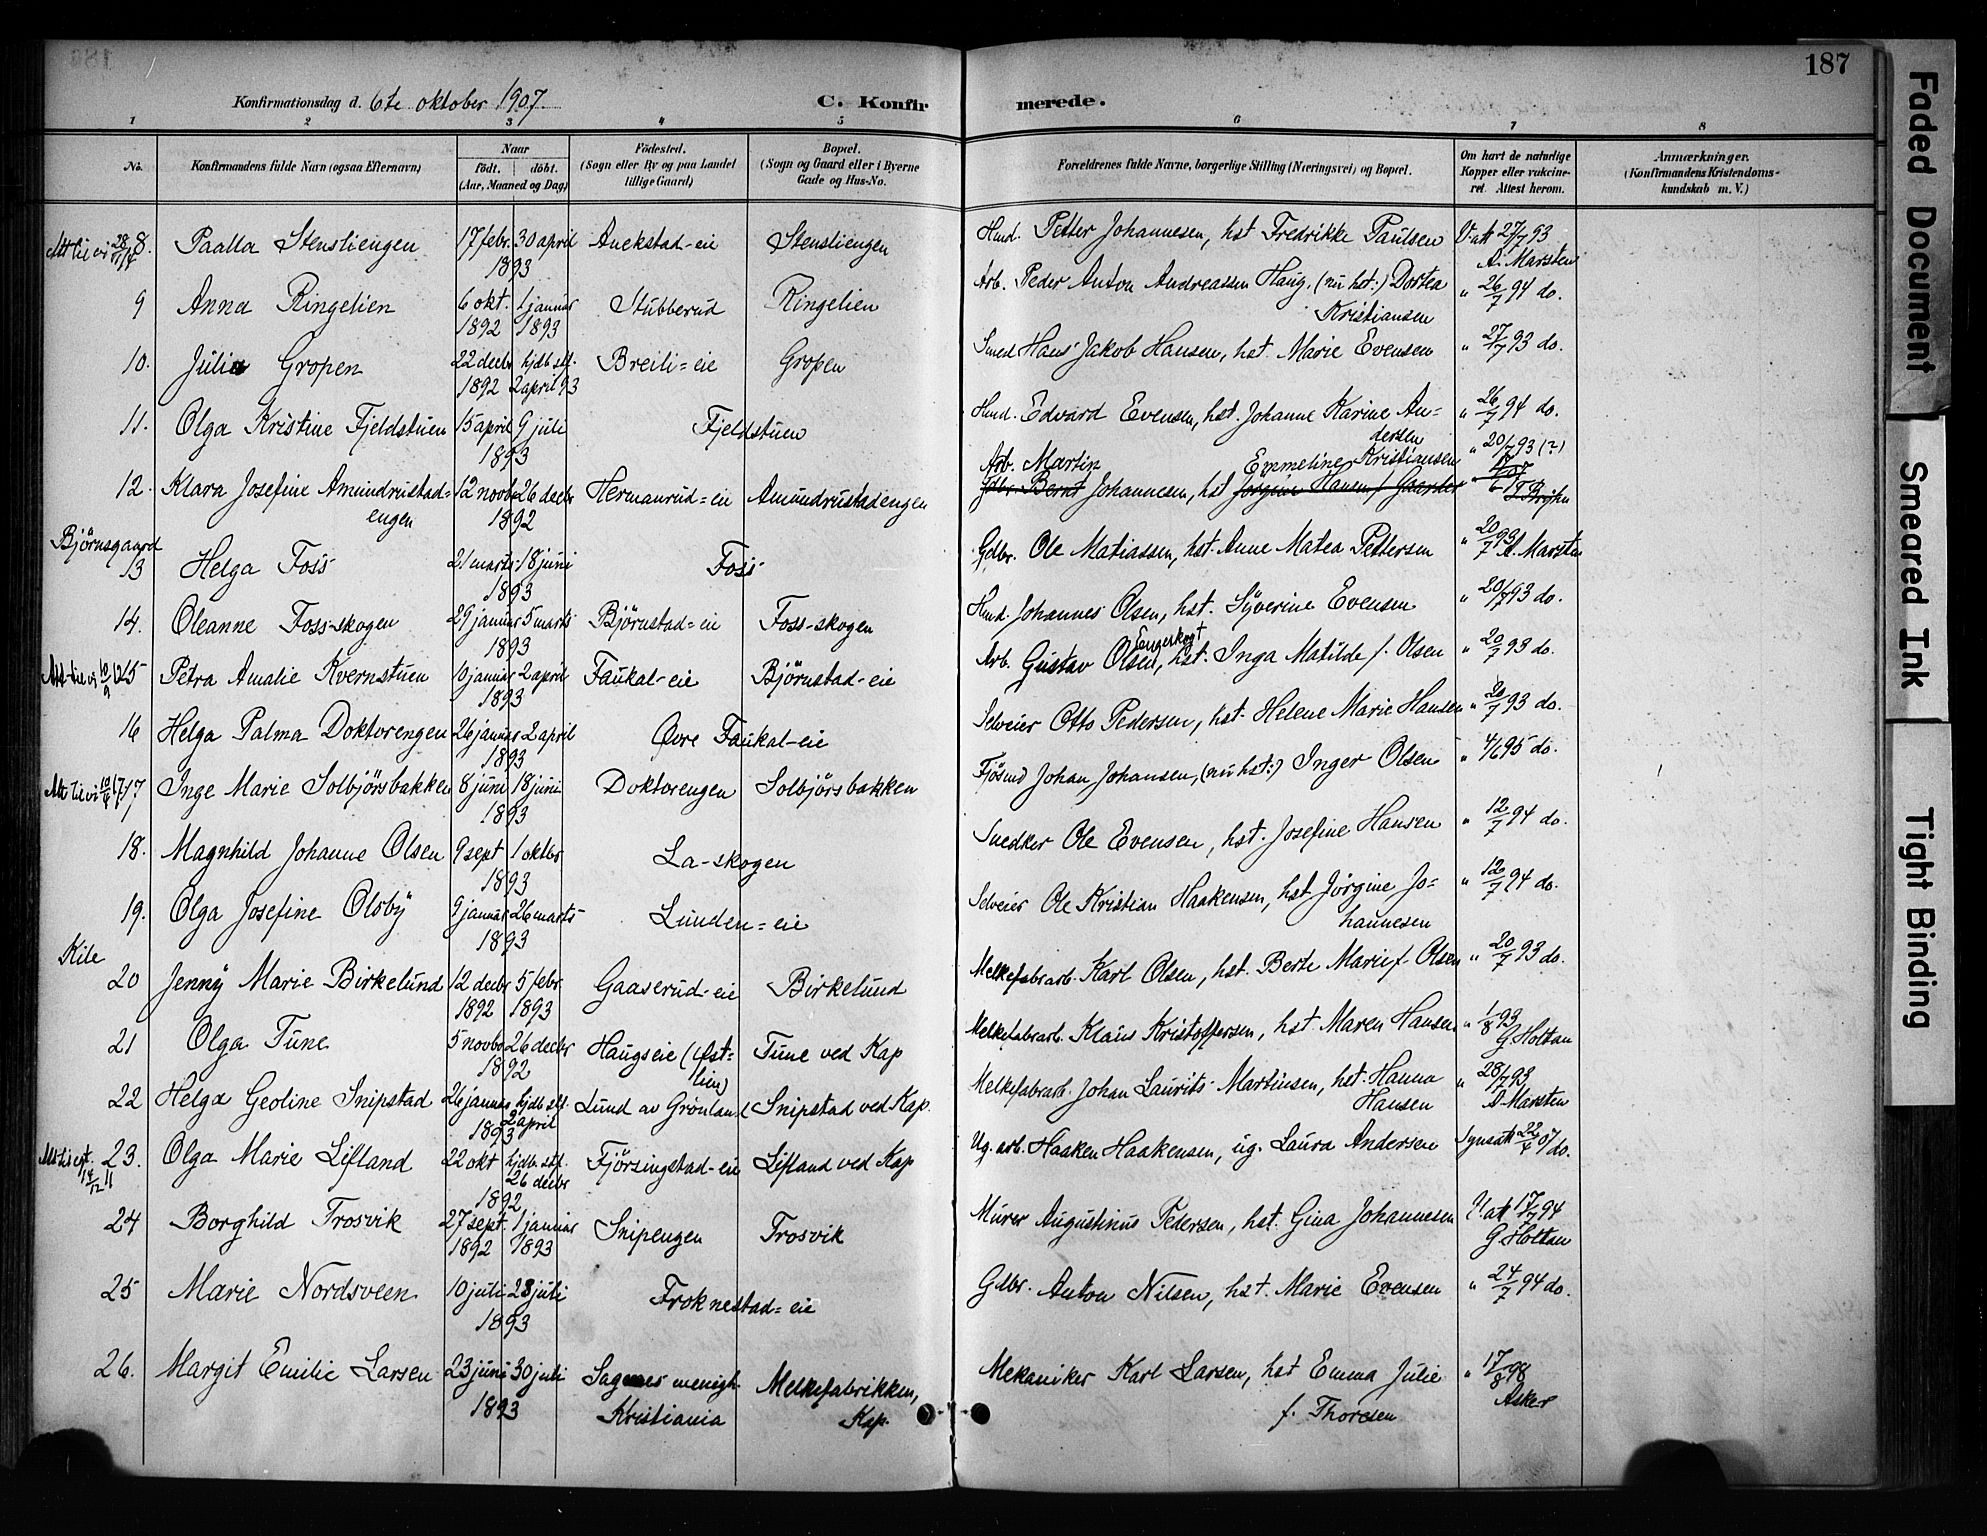 187
Konfirmationsdag d. 6te oktober 1907. C. Konfirmerede.
1 2 3 4 5 6 7 8
No. | Konfirmandens fulde Navn (ogsaa Efternavn) | Naar født. døbt. (Aar, Maaned og Dag) | Fødested. (Sogn eller By og paa Landet tillige Gaard) | Bopæl. (Sogn og Gaard eller i Byerne Gade og Hus-No. | Forældrenes fulde Navne, borgerlige Stilling (Næringsvei) og Bopæl. | Om havt de naturlige Kopper eller vakcineret. Attest herom. | Anmærkninger. (Konfirmandens Kristendomskundskab m. V.)
8. Paalla Stensliengen 17 febr. 30 april 1893 Stensliengen Husd. Petter Johannesen, hst Fredrikke Paulsen V. att 27/7 93 A. Marsten
9 Anna Ringelien 6 okt. 1892 1 januar 1893 Stubberud Ringelien Arb. Peder Anton Andreassen Haug, (nu hst:) Dortea Kristiansen " 26/7 94 do.
10. Julia Gropen 22 decbr 1892 hjdb. stf. 2 april 93 Breili-eie Gropen Smed Hans Jakob Hansen, hst. Marie Evensen " 27/7 93 do.
11. Olga Kristine Fjeldstuen 15 april 9 juli 1893 Fjeldstuen Husd. Edvard Evensen, hst. Johanne Karine Andersen " 26/7 94 do.
12. Klara Josefine Amundrustadengen 12 novbr 26 decbr 1892 Hermanrud-eie Amundrustadengen Arb. Martin Emmeline Kristiansen " 20/7 93 (?)
Gdbr. Bernt Johannesen, hst Jørgine Hansen f.
Bjørnsgaard
13 Helga Foss 21 marts 18 juni 1893 Foss Gdbr. Ole Matiassen, hst. Anne Matea Pettersen " 20/7 93 A. Marsten
14. Oleanne Foss-skogen 29 januar 5 marts 1893 Bjørnstad-eie Foss-skogen Husd. Johannes Olsen, hst. Syverine Evensen " 20/7 93 do.
15 Petra Amalie Kvernstuen 10 januar 2 april 1893 Faukal-eie Bjørnstad-eie Arb. Gustav Olsen, hst. Inga Matilde f. Olsen " 20/7 93 do.
16 Helga Palma Doktorengen 26 januar 2 april 1893 Øvre Faukal-eie Selveier Otto Pedersen, hst. Helene Marie Hansen " 20/7 93 do.
17 Inge Marie Solbjørsbakken 8 juni 18 juni 1893 Doktorengen Solbjørsbakken Fjøsmd Johan Johansen, (nu hst:) Inger Olsen " 4/6 95 do.
18. Magnhild Johanne Olsen 9 sept 1 oktbr 1893 La-skogen Snedker Ole Evensen, hst. Josefine Hansen " 12/7 94 do.
19. Olga Josefine Olsby 9 januar 26 marts 1893 Lunden-eie Selveier Ole Kristian Haakensen, hst Jørgine Johannesen " 12/7 94 do.
Kile
20 Jenny Marie Birkelund 12 decbr 1892 5 febr. 1893 Gaaserud-eie Birkelund Melkefabrarb. Karl Olsen, hst. Berte Marie f. Olsen " 20/7 93 do.
21 Olga Tune 5 novbr 26 decbr 1892 Haugseie (Østlien) Tune ved Kap Melkefabrarb. Klaus Kristoffersen, hst. Maren Hansen " 1/8 93 G. Holtan
22 Helga Geoline Snipstad 26 januar hjdb. stf. 2 april 1893 Lund av Grønland Snipstad ved Kap. Melkefabrarb. Johan Laurits Martinsen, hst. Hanna Hansen " 28/7 93 A Marsten
23. Olga Marie Lifland 22 okt hjdb. stf. 26 decbr 1892 Fjørsingstad-eie Lifland ved Kap Ug. arb. Haaken Haakensen, ug. Laura Andersen Synsatt 22/4 07 do.
24 Borghild Trosvik 27 sept. 1892 1 januar 1893 Snipengen Trosvik Murer Augustinus Pedersen, hst. Gina Johannesen V. att 17/7 94 G. Holtan
25 Marie Nordsveen 10 juli 23 juli 1893 Froknestad-eie Gdbr. Anton Nilsen, hst. Marie Evensen " 24/7 94 do.
26. Margit Emilie Larsen 23 juni 30 juli 1893 Sagenes menigh. Kristiania Melkefabrikken, Kap. Mekaniker Karl Larsen, hst Emma Julie f. Thoresen " 17/8 98 Asker
Faded Document
Smeared Ink
Tight Binding